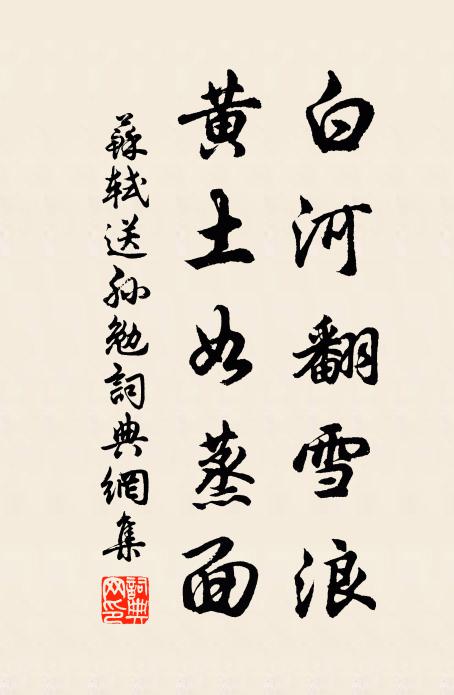 白河翻雪浪
黄土如蒸面
蘇軾送孙勉詞典網集
詞典网印